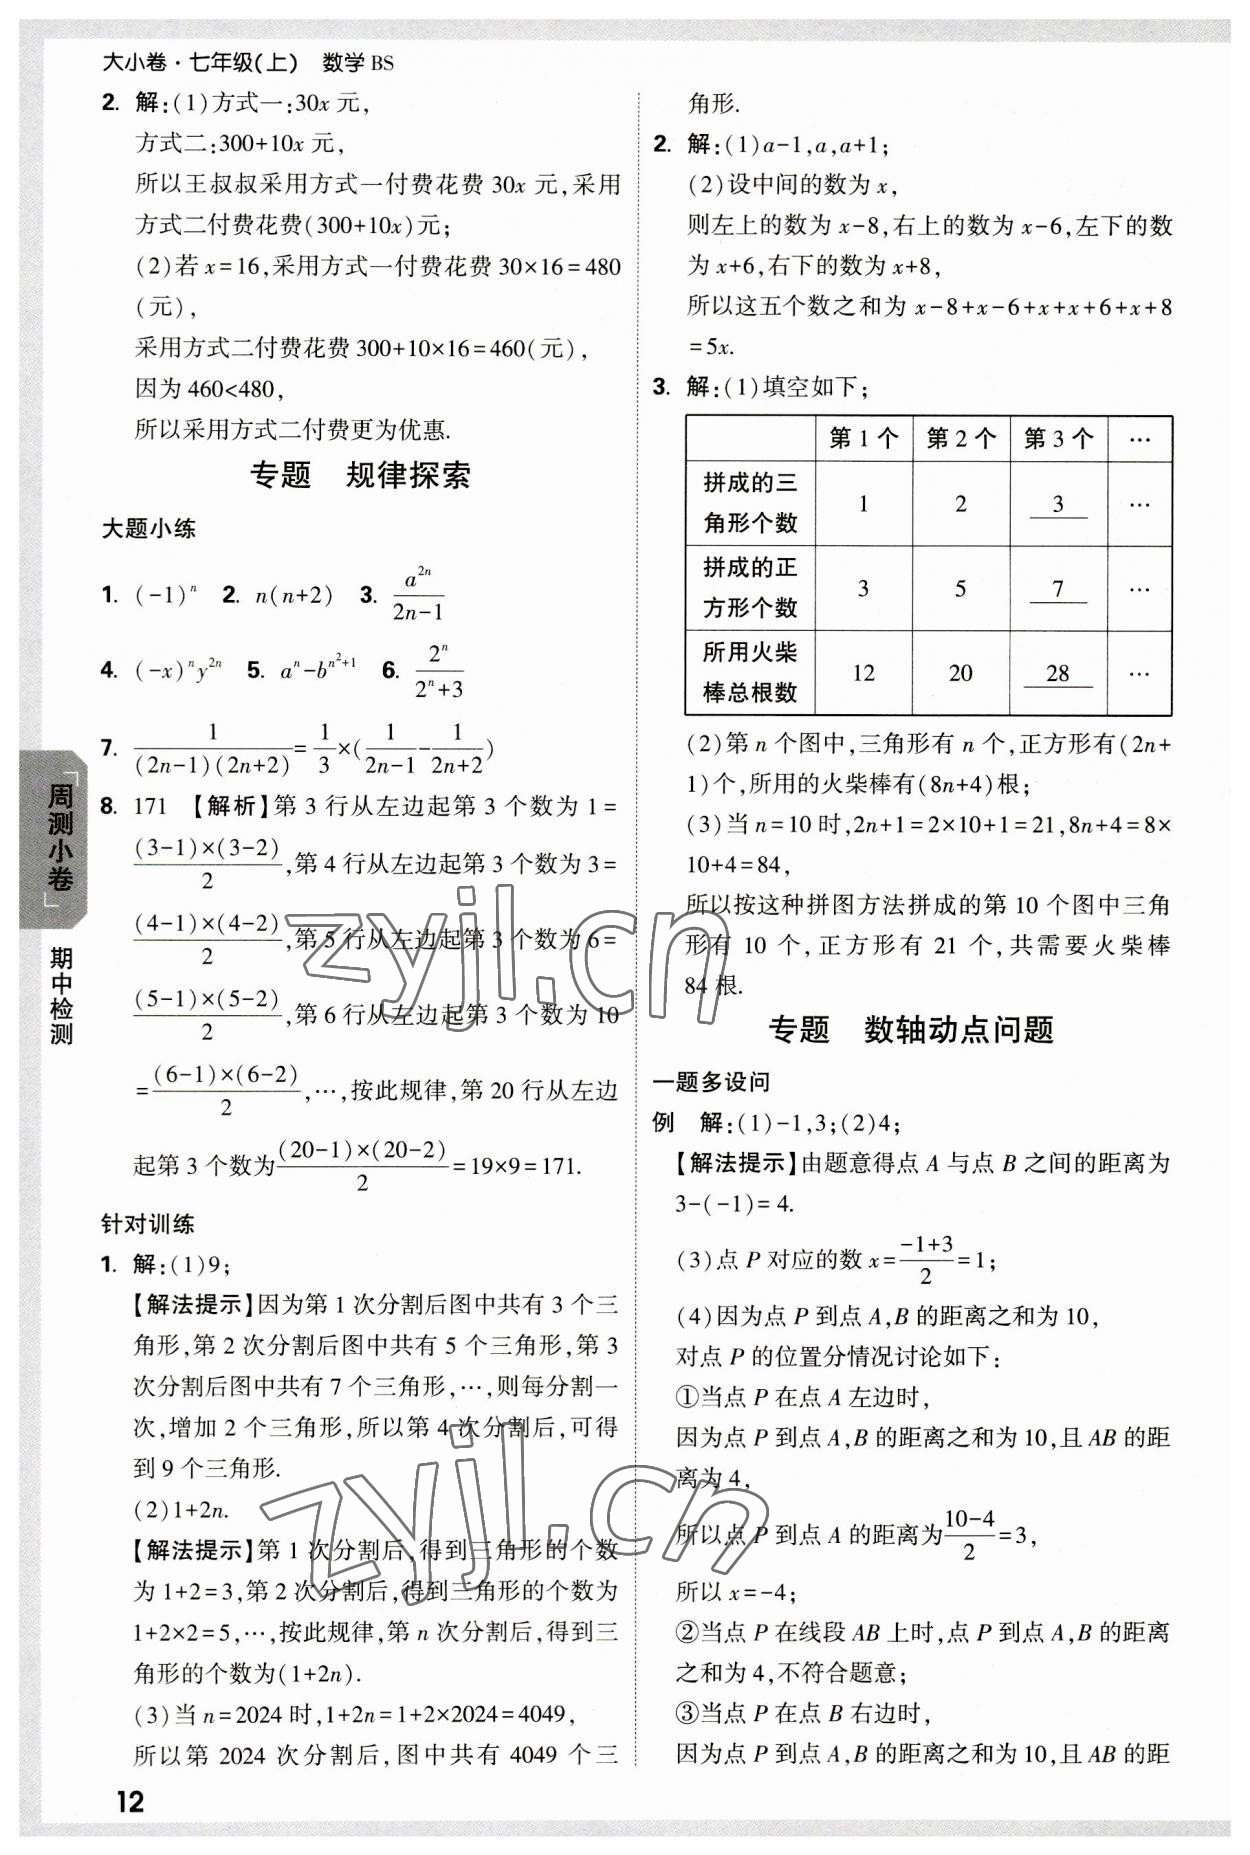 大小卷·七年级(上) 数学 BS
2. 解:(1)方式一:30x 元,
方式二:300+10x 元,
所以王叔叔采用方式一付费花费 30x 元,采用
方式二付费花费(300+10x)元;
(2)若 x=16,采用方式一付费花费 30×16=480
(元),
采用方式二付费花费 300+10×16=460(元),
因为 460<480,
所以采用方式二付费更为优惠.
专题 规律探索
大题小练
1. (-1)^n 2. n(n+2) 3. a^{2n}/(2n-1)
4. (-x)^n y^{2n} 5. a^n-b^{n^2+1} 6. 2^n/(2^n+3)
7. 1/((2n-1)(2n+2))=1/3×(1/(2n-1)-1/(2n+2))
8. 171 【解析】第 3 行从左边起第 3 个数为 1=
(3-1)×(3-2)/2,第 4 行从左边起第 3 个数为 3=
(4-1)×(4-2)/2,第 5 行从左边起第 3 个数为 6=
(5-1)×(5-2)/2,第 6 行从左边起第 3 个数为 10
=(6-1)×(6-2)/2,…,按此规律,第 20 行从左边
起第 3 个数为(20-1)×(20-2)/2=19×9=171.
针对训练
1. 解:(1)9;
【解法提示】因为第 1 次分割后图中共有 3 个三
角形,第 2 次分割后图中共有 5 个三角形,第 3
次分割后图中共有 7 个三角形,…,则每分割一
次,增加 2 个三角形,所以第 4 次分割后,可得
到 9 个三角形.
(2)1+2n.
【解法提示】第 1 次分割后,得到三角形的个数
为 1+2=3,第 2 次分割后,得到三角形的个数为
1+2×2=5,…,按此规律,第 n 次分割后,得到三
角形的个数为(1+2n).
(3)当 n=2024 时,1+2n=1+2×2024=4049,
所以第 2024 次分割后,图中共有 4049 个三
角形.
2. 解:(1)a-1,a,a+1;
(2)设中间的数为 x,
则左上的数为 x-8,右上的数为 x-6,左下的数
为 x+6,右下的数为 x+8,
所以这五个数之和为 x-8+x-6+x+x+6+x+8
=5x.
3. 解:(1)填空如下;
第 1 个 第 2 个 第 3 个 …
拼成的三
角形个数 1 2 3 …
拼成的正
方形个数 3 5 7 …
所用火柴
棒总根数 12 20 28 …
(2)第 n 个图中,三角形有 n 个,正方形有(2n+
1)个,所用的火柴棒有(8n+4)根;
(3)当 n=10 时,2n+1=2×10+1=21,8n+4=8×
10+4=84,
所以按这种拼图方法拼成的第 10 个图中三角
形有 10 个,正方形有 21 个,共需要火柴棒
84 根.
专题 数轴动点问题
一题多设问
例 解:(1)-1,3;(2)4;
【解法提示】由题意得点 A 与点 B 之间的距离为
3-(-1)=4.
(3)点 P 对应的数 x=(-1+3)/2=1;
(4)因为点 P 到点 A,B 的距离之和为 10,
对点 P 的位置分情况讨论如下:
①当点 P 在点 A 左边时,
因为点 P 到点 A,B 的距离之和为 10,且 AB 的距
离为 4,
所以点 P 到点 A 的距离为(10-4)/2=3,
所以 x=-4;
②当点 P 在线段 AB 上时,点 P 到点 A,B 的距离
之和为 4,不符合题意;
③当点 P 在点 B 右边时,
因为点 P 到点 A,B 的距离之和为 10,且 AB 的距
「周测小卷」
期中检测
12
zyjl.cn
zyjl.cn